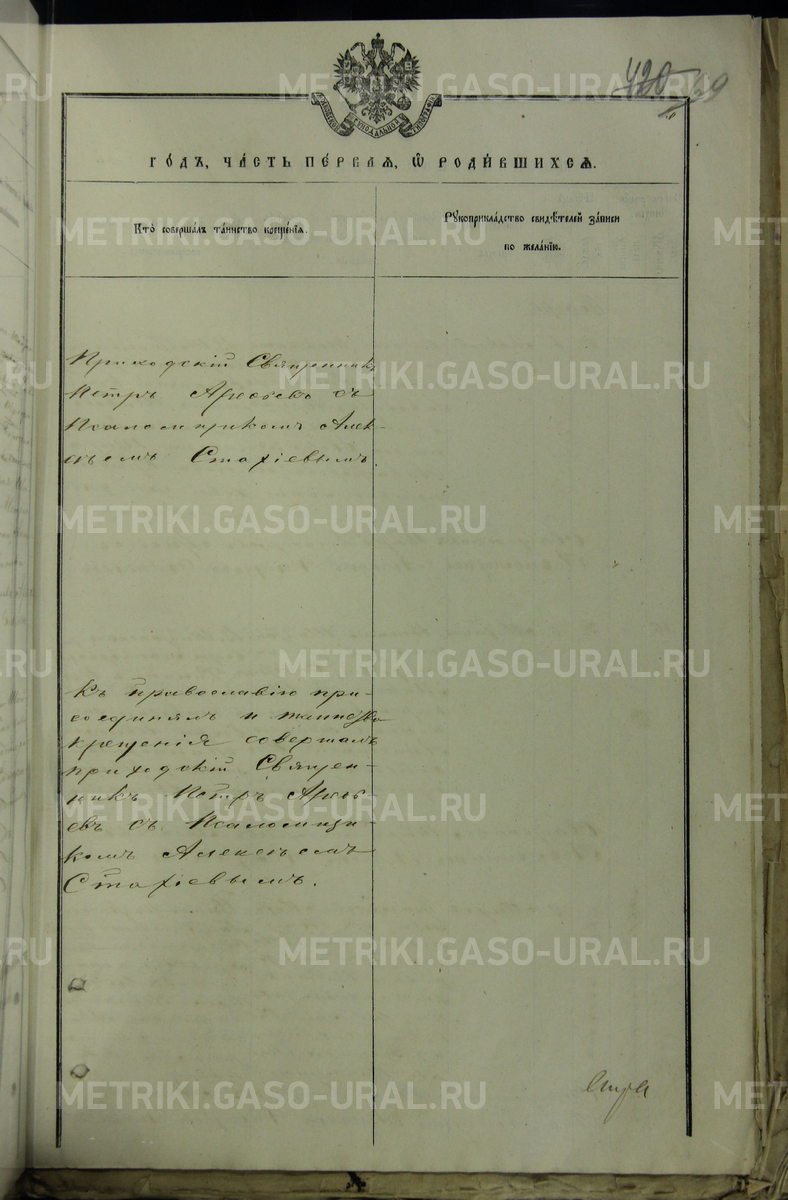 420
69
СѴНОДАЛЬНОЙ
ГО́ДЪ, ЧА́СТЬ ПЕ́РВАѦ, Ѡ РОДИ́ВШИХСѦ.
Кто̀ соверша́лъ та́инство креще́нїѧ.
Рꙋкоприкла́дство свидѣ́телей за́писи
по жела́нїю.
Приходскій Священникъ
Петръ съ
Псаломщикомъ Алек-
сѣемъ Стахіевымъ
Къ православію при-
соединялъ и таинство
крещенія совершалъ
приходскій Священ-
никъ Петръ
съ Псаломщи-
комъ Алексѣемъ
Стахіевымъ.
METRIKI.GASO-URAL.RU